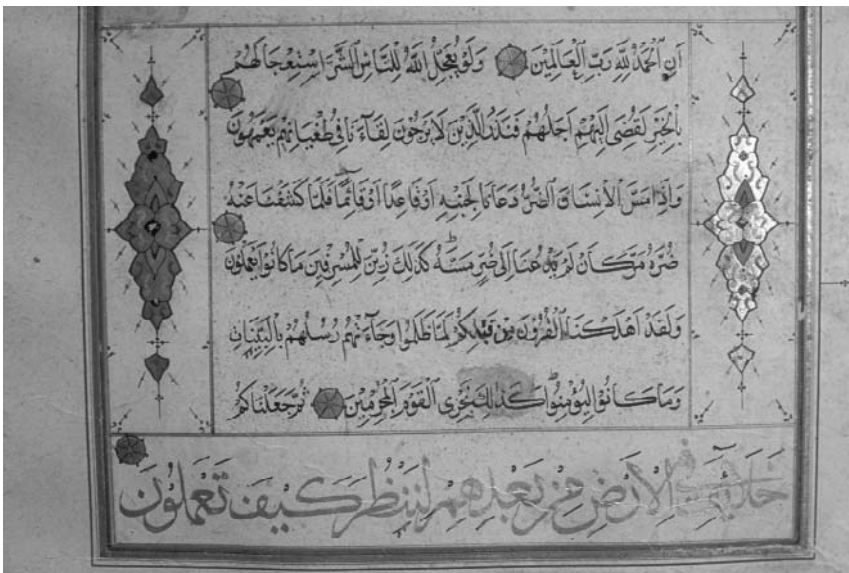 اَنِ الْحَمْدُ لِلّٰهِ رَبِّ الْعَالَمِيْنَ وَلَوْ يُعَجِّلُ اللّٰهُ لِلنَّاسِ الشَّرَّ اسْتِعْجَالَهُمْ
بِالْخَيْرِ لَقُضِىَ اِلَيْهِمْ اَجَلُهُمْ فَنَذَرُ الَّذِيْنَ لَا يَرْجُونَ لِقَآءَنَا فِى طُغْيَانِهِمْ يَعْمَهُونَ
وَاِذَا مَسَّ الْاِنْسَانَ الضُّرُّ دَعَانَا لِجَنْبِهِ اَوْ قَاعِدًا اَوْ قَآئِمًا فَلَمَّا كَشَفْنَا عَنْهُ
ضُرَّهُ مَرَّ كَاَنْ لَمْ يَدْعُنَا اِلٰى ضُرٍّ مَسَّهُ كَذٰلِكَ زُيِّنَ لِلْمُسْرِفِينَ مَا كَانُوا يَعْمَلُونَ
وَلَقَدْ اَهْلَكْنَا الْقُرُونَ مِنْ قَبْلِكُمْ لَمَّا ظَلَمُوا وَجَآءَتْهُمْ رُسُلُهُمْ بِالْبَيِّنَاتِ
وَمَا كَانُوا لِيُؤْمِنُوا كَذٰلِكَ نَجْزِى الْقَوْمَ الْمُجْرِمِيْنَ ثُمَّ جَعَلْنَاكُمْ
خَلَآئِفَ فِى الْاَرْضِ مِنْ بَعْدِهِمْ لِنَنْظُرَ كَيْفَ تَعْمَلُونَ